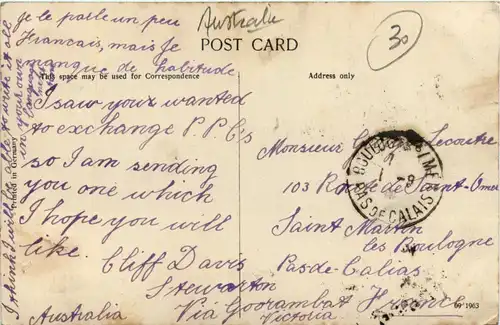 Australie
30
je le parle un peu
Francais, mais je
manque de habitude
POST CARD
This space may be used for Correspondence
Address only
I saw your wanted
to exchange P.P.C's
so I am sending
you one which
I hope you will
like.
Cliff Davis
Stewarton
Via Goorambat
Australia
Victoria
I think I will be able to write it all
in your own
Monsieur Lecoutre
103 Route de Saint-Omer
Saint Martin
les Boulogne
Pas de Calias
France
PAS DE CALAIS
Printed in Germany
09 1963